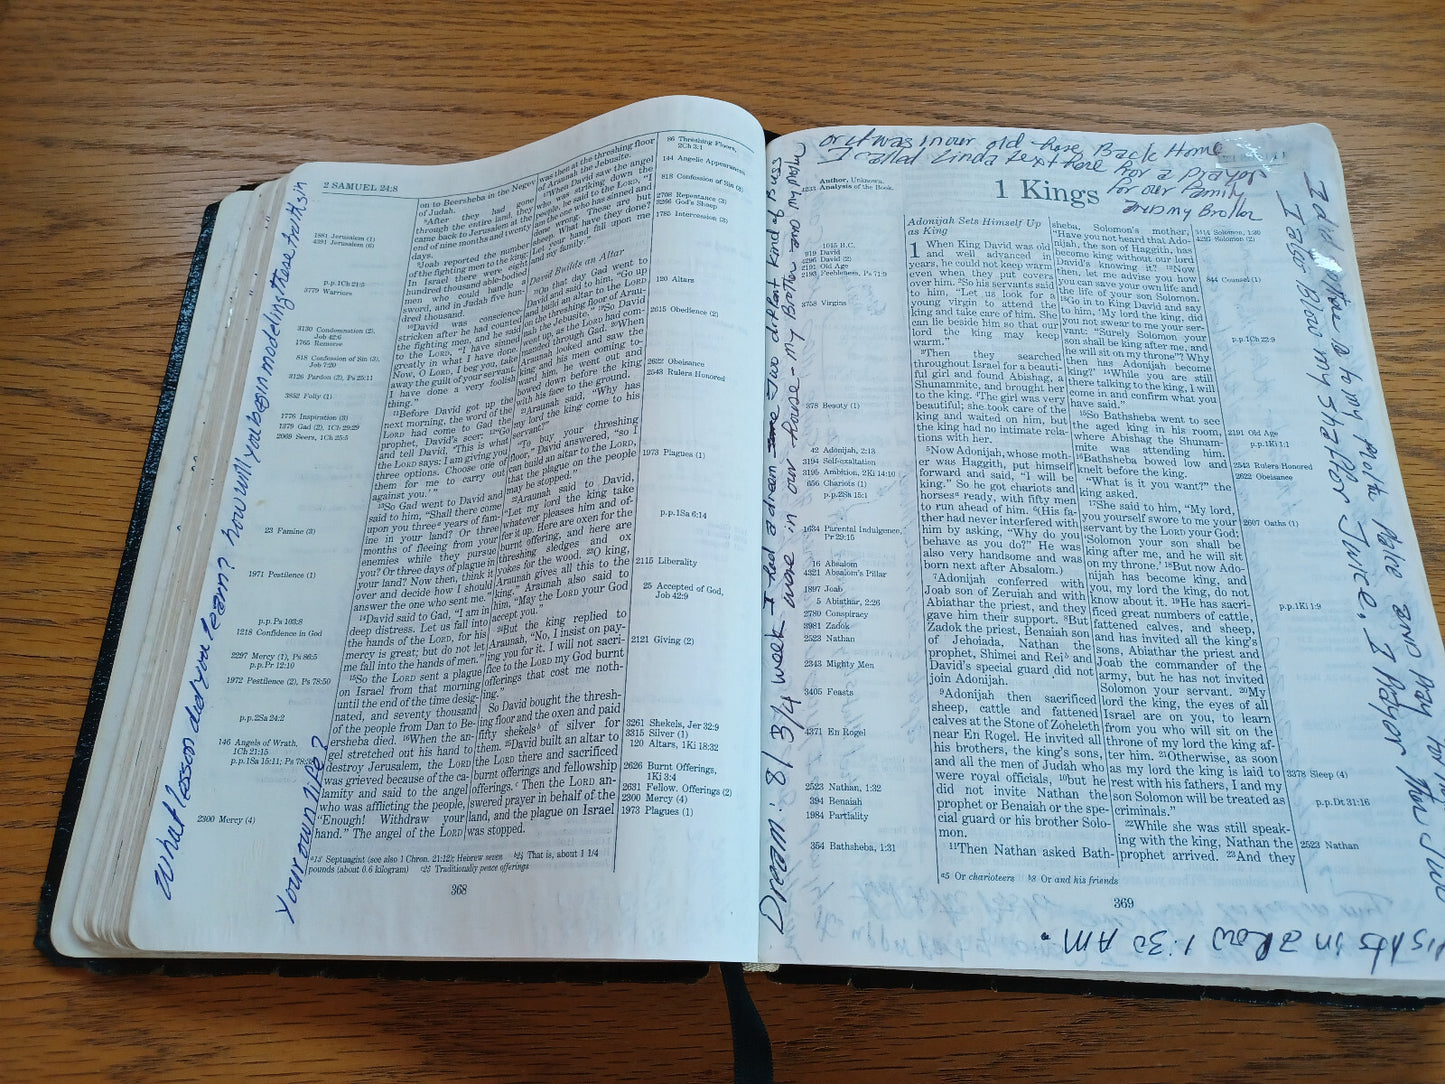 2 SAMUEL 24:8
1881 Jerusalem (1)
4391 Jerusalem (6)
p.p.1Ch 21:5
3779 Warriors
3130 Condemnation (2),
Job 42:6
1765 Remorse
818 Confession of Sin (3),
Job 7:20
3126 Pardon (2), Ps 25:11
3852 Folly (1)
1776 Inspiration (3)
1379 Gad (2), 1Ch 29:29
2069 Seers, 1Ch 25:5
23 Famine (3)
1971 Pestilence (1)
p.p.Ps 103:8
1218 Confidence in God
2297 Mercy (1), Ps 86:5
p.p.Pr 12:10
1972 Pestilence (2), Ps 78:50
p.p.2Sa 24:2
146 Angels of Wrath,
1Ch 21:15
p.p.1Sa 15:11; Ps 78:38
2300 Mercy (4)
on to Beersheba in the Negev
of Judah.
⁸After they had gone
through the entire land, they
came back to Jerusalem at the
end of nine months and twenty
days.
⁹Joab reported the number
of the fighting men to the king:
In Israel there were eight
hundred thousand able-bodied
men who could handle a
sword, and in Judah five hun-
dred thousand.
¹⁰David was conscience-
stricken after he had counted
the fighting men, and he said
to the LORD, "I have sinned
greatly in what I have done.
Now, O LORD, I beg you, take
away the guilt of your servant.
I have done a very foolish
thing."
¹¹Before David got up the
next morning, the word of the
LORD had come to Gad the
prophet, David's seer: ¹²"Go
and tell David, 'This is what
the LORD says: I am giving you
three options. Choose one of
them for me to carry out
against you.' "
¹³So Gad went to David and
said to him, "Shall there come
upon you three ᵃ years of fam-
ine in your land? Or three
months of fleeing from your
enemies while they pursue
you? Or three days of plague in
your land? Now then, think it
over and decide how I should
answer the one who sent me."
¹⁴David said to Gad, "I am in
deep distress. Let us fall into
the hands of the LORD, for his
mercy is great; but do not let
me fall into the hands of men."
¹⁵So the LORD sent a plague
on Israel from that morning
until the end of the time desig-
nated, and seventy thousand
of the people from Dan to Be-
ersheba died. ¹⁶When the an-
gel stretched out his hand to
destroy Jerusalem, the LORD
was grieved because of the ca-
lamity and said to the angel
who was afflicting the people,
"Enough! Withdraw your
hand." The angel of the LORD
was then at the threshing floor
of Araunah the Jebusite.
¹⁷When David saw the angel
who was striking down the
people, he said to the LORD, "I
am the one who has sinned and
done wrong. These are but
sheep. What have they done?
Let your hand fall upon me
and my family."
David Builds an Altar
¹⁸On that day Gad went to
David and said to him, "Go up
and build an altar to the LORD
on the threshing floor of Arau-
nah the Jebusite." ¹⁹So David
went up, as the LORD had com-
manded through Gad. ²⁰When
Araunah looked and saw the
king and his men coming to-
ward him, he went out and
bowed down before the king
with his face to the ground.
²¹Araunah said, "Why has
my lord the king come to his
servant?"
"To buy your threshing
floor," David answered, "so I
can build an altar to the LORD,
that the plague on the people
may be stopped."
²²Araunah said to David,
"Let my lord the king take
whatever pleases him and of-
fer it up. Here are oxen for the
burnt offering, and here are
threshing sledges and ox
yokes for the wood. ²³O king,
Araunah gives all this to the
king." Araunah also said to
him, "May the LORD your God
accept you."
²⁴But the king replied to
Araunah, "No, I insist on pay-
ing you for it. I will not sacri-
fice to the LORD my God burnt
offerings that cost me noth-
ing."
So David bought the thresh-
ing floor and the oxen and paid
fifty shekels ᵇ of silver for
them. ²⁵David built an altar to
the LORD there and sacrificed
burnt offerings and fellowship
offerings. ᶜ Then the LORD an-
swered prayer in behalf of the
land, and the plague on Israel
was stopped.
86 Threshing Floors,
2Ch 3:1
144 Angelic Appearances
818 Confession of Sin (3)
2708 Repentance (3)
3296 God's Sheep
1785 Intercession (3)
120 Altars
2615 Obedience (2)
2622 Obeisance
2543 Rulers Honored
1973 Plagues (1)
p.p.1Sa 6:14
2115 Liberality
25 Accepted of God,
Job 42:9
2121 Giving (2)
3261 Shekels, Jer 32:9
3315 Silver (1)
120 Altars, 1Ki 18:32
2626 Burnt Offerings,
1Ki 3:4
2631 Fellow. Offerings (2)
2300 Mercy (4)
1973 Plagues (1)
ᵃ13 Septuagint (see also 1 Chron. 21:12); Hebrew seven ᵇ24 That is, about 1 1/4
pounds (about 0.6 kilogram) ᶜ25 Traditionally peace offerings
368
What lesson did you learn? how will you begin modeling these truths in
your own life?
or it was in our old hose Back Home
I called Linda text here for a prayer
for our family
my Brother
1 Kings
Author, Unknown.
4233 Analysis of the Book.
1015 B.C.
919 David
4296 David (2)
2191 Old Age
2193 Feebleness, Ps 71:9
3758 Virgins
378 Beauty (1)
42 Adonijah, 2:13
3194 Self-exaltation
3195 Ambition, 2Ki 14:10
656 Chariots (1)
p.p.2Sa 15:1
1634 Parental Indulgence,
Pr 29:15
16 Absalom
4321 Absalom's Pillar
1897 Joab
5 Abiathar, 2:26
2780 Conspiracy
3981 Zadok
2523 Nathan
2343 Mighty Men
3405 Feasts
4371 En Rogel
2523 Nathan, 1:32
394 Benaiah
1984 Partiality
354 Bathsheba, 1:31
Adonijah Sets Himself Up
as King
1 When King David was old
and well advanced in
years, he could not keep warm
even when they put covers
over him. ²So his servants said
to him, "Let us look for a
young virgin to attend the
king and take care of him. She
can lie beside him so that our
lord the king may keep
warm."
³Then they searched
throughout Israel for a beauti-
ful girl and found Abishag, a
Shunammite, and brought her
to the king. ⁴The girl was very
beautiful; she took care of the
king and waited on him, but
the king had no intimate rela-
tions with her.
⁵Now Adonijah, whose moth-
er was Haggith, put himself
forward and said, "I will be
king." So he got chariots and
horses ᵃ ready, with fifty men
to run ahead of him. ⁶(His fa-
ther had never interfered with
him by asking, "Why do you
behave as you do?" He was
also very handsome and was
born next after Absalom.)
⁷Adonijah conferred with
Joab son of Zeruiah and with
Abiathar the priest, and they
gave him their support. ⁸But
Zadok the priest, Benaiah son
of Jehoiada, Nathan the
prophet, Shimei and Rei ᵇ and
David's special guard did not
join Adonijah.
⁹Adonijah then sacrificed
sheep, cattle and fattened
calves at the Stone of Zoheleth
near En Rogel. He invited all
his brothers, the king's sons,
and all the men of Judah who
were royal officials, ¹⁰but he
did not invite Nathan the
prophet or Benaiah or the spe-
cial guard or his brother Solo-
mon.
¹¹Then Nathan asked Bath-
sheba, Solomon's mother,
"Have you not heard that Ado-
nijah, the son of Haggith, has
become king without our lord
David's knowing it? ¹²Now
then, let me advise you how
you can save your own life and
the life of your son Solomon.
¹³Go in to King David and say
to him, 'My lord the king, did
you not swear to me your ser-
vant: "Surely Solomon your
son shall be king after me, and
he will sit on my throne"? Why
then has Adonijah become
king?' ¹⁴While you are still
there talking to the king, I will
come in and confirm what you
have said."
¹⁵So Bathsheba went to see
the aged king in his room,
where Abishag the Shunam-
mite was attending him.
¹⁶Bathsheba bowed low and
knelt before the king.
"What is it you want?" the
king asked.
¹⁷She said to him, "My lord,
you yourself swore to me your
servant by the LORD your God:
'Solomon your son shall be
king after me, and he will sit
on my throne.' ¹⁸But now Ado-
nijah has become king, and
you, my lord the king, do not
know about it. ¹⁹He has sacri-
ficed great numbers of cattle,
fattened calves, and sheep,
and has invited all the king's
sons, Abiathar the priest and
Joab the commander of the
army, but he has not invited
Solomon your servant. ²⁰My
lord the king, the eyes of all
Israel are on you, to learn
from you who will sit on the
throne of my lord the king af-
ter him. ²¹Otherwise, as soon
as my lord the king is laid to
rest with his fathers, I and my
son Solomon will be treated as
criminals."
²²While she was still speak-
ing with the king, Nathan the
prophet arrived. ²³And they
3414 Solomon, 1:30
4295 Solomon (2)
844 Counsel (1)
p.p.1Ch 22:9
2191 Old Age
p.p.1Ki 1:1
2543 Rulers Honored
2622 Obeisance
2607 Oaths (1)
p.p.1Ki 1:9
2378 Sleep (4)
p.p.Dt 31:16
2523 Nathan
ᵃ5 Or charioteers ᵇ8 Or and his friends
369
Dream: 8/13/4 week I had a dream some two different kind of Buss
were in our house - my Brother and my Mother
I also Blow my Shofar Twice. I prayer
in a Row 1:30 AM.